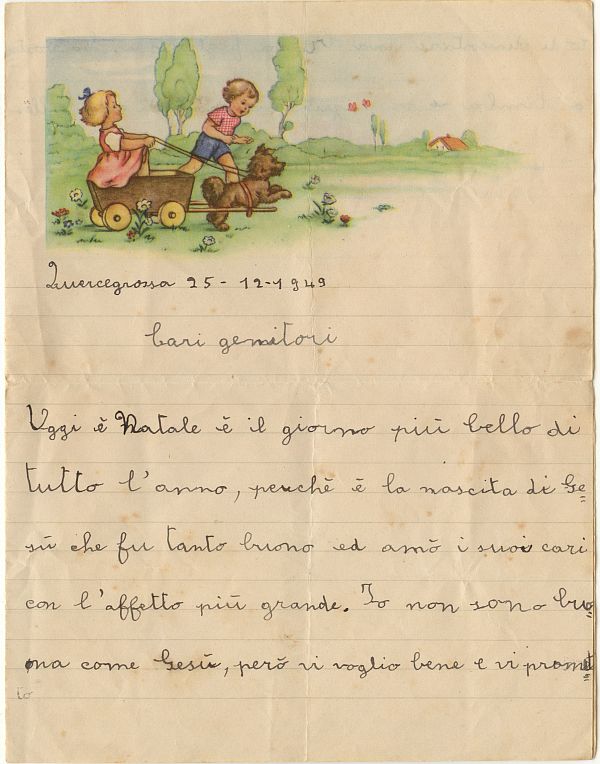 Quercegrossa 25-12-1949
Cari genitori
Oggi è Natale è il giorno più bello di
tutto l'anno, perchè è la nascita di Ge=
sù che fu tanto buono ed amò i suoi cari
con l'affetto più grande. Io non sono buo=
na come Gesù, però vi voglio bene e vi promet=
to